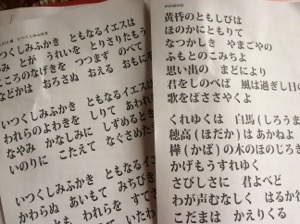 つくしみふかき　ともなるイエスは
みとが　うれいを　とりさりたもう
こころのなげきを　つつまず　のべて
などかは　おろさぬ　おえる　おもに
いつくしみふかき　ともなるイエスは
われらのよわきを　しりて　あわれ
なやみ　かなしみに　しずめるとき
いのりに　こたえて　なぐさめた
いつくしみふかき　ともなるイエスは
かわらぬ　あいもて　みちび
とも　われらを　すて
黄昏のともしびは
ほのかにともりて
なつかしき　やまごやの
ふもとのこみちよ
思い出の　まどにより
君をしのべば　風は過ぎし日の
歌をばささやくよ
くれゆくは　白馬(しろうま
穂高(ほだか)はあかねよ
樺(かば)の木のほのじろき
かげもうすれゆく
さびしさに　君よべど
わが声むなしく　はるか
こだまは　かえりくる